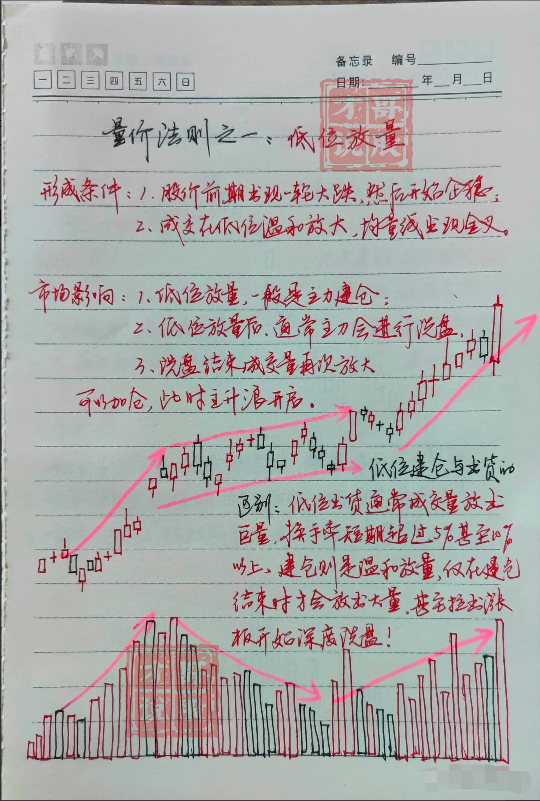 备忘录 编号
一 二 三 四 五 六 日
日期 年 月 日
量价法则之一：低位放量
形成条件：1. 股价前期出现一轮大跌，然后开始企稳；
2. 成交在低位温和放大，均量线出现金叉。
市场影响：1. 低位放量，一般是主力建仓；
2. 低位放量后，通常主力会进行洗盘
3. 洗盘结束成交量再次放大
可以加仓，此时主升浪开启。
低位建仓与出货的
区别：低位出货通常成交量放出
巨量，换手率短期超过5%甚至10%
以上，建仓则是温和放量，仅在建仓
结束时才会放出大量，甚至拉出涨
板开始深度洗盘！